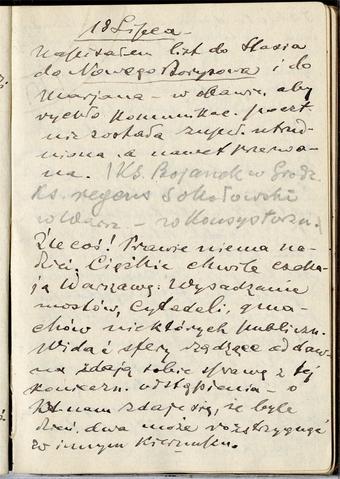 18 Lipca -
Napisałem list do Stasia
do Nowego Borysowa i do
Marjana - w obawie, aby
rychło komunikac. poczt.
nie została zupeł. utrud-
niona a nawet przerwa-
na. / Ks. Bojanek w Grodz.
Ks. regens Sokołowski
w Warsz. - w Konsystorzu.
Źle coś! Prawie niema na-
dziei. Ciężkie chwile czeka-
ją Warszawę: Wysadzanie
mostów, Cytadeli, gma-
chów niektórych publiczn.
Widać sfery rządzące od daw-
na zdają sobie sprawę z tej
konieczn. odstąpienia - a
nam zdaje się, że byle
dzień dwa może rozstrzygnąć
w innym kierunku.